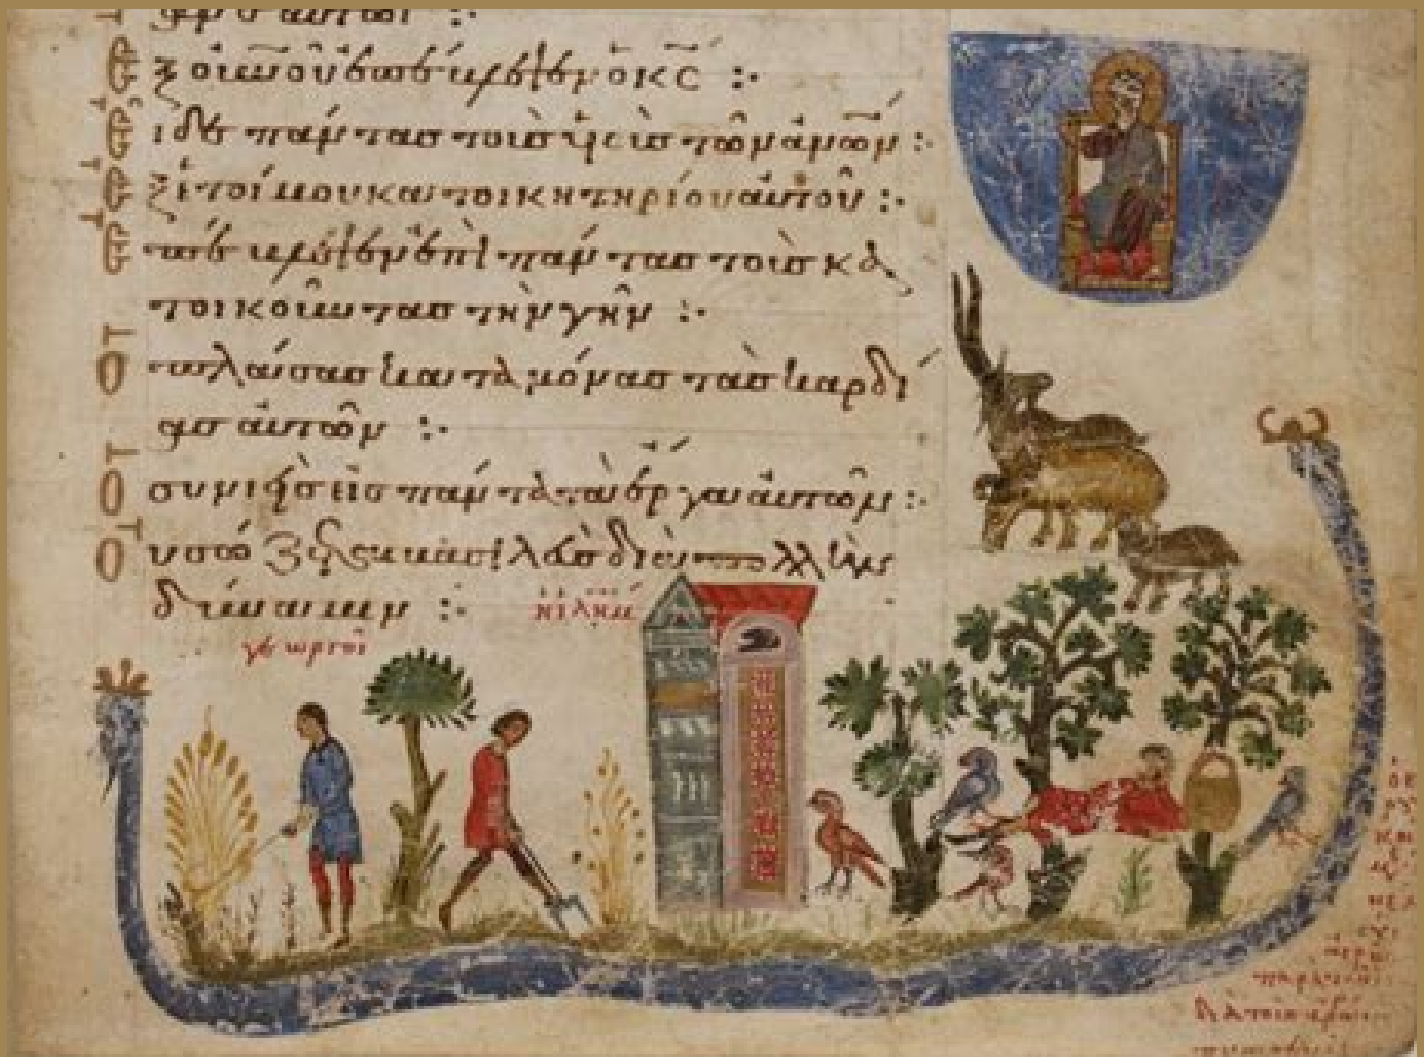 Ἐξ οὐνοῦ ἐπέβλεψεν ὁ κς :·
Εἶδε πάντας τοὺς υἱοὺς τῶν ἀνων :·
Ἐξ ἑτοίμου κατοικητηρίου αὐτοῦ :·
Ἐπέβλεψεν ἐπὶ πάντας τοὺς κα
τοικοῦντας τὴν γῆν :·
Ὁ πλάσας καταμόνας τὰς καρδί
ας αὐτῶν :·
Ὁ συνιεὶς πάντα τὰ ἔργα αὐτῶν :·
Οὐ σώζεται βασιλεὺς διὰ πολλὴν
δύναμιν :·
ἡ ιλημ
γεωργοὶ